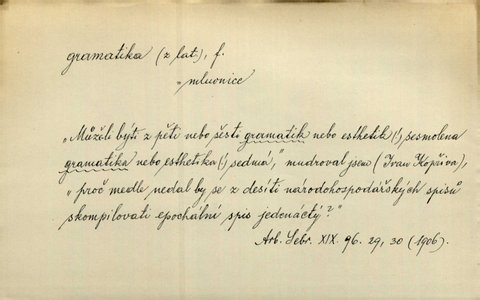 gramatika (z lat.), f.
= mluvnice
„Může-li býti z pěti nebo šesti gramatik nebo esthetik (!) sesmolena
gramatika nebo esthetika (!) sedmá," mudroval jsem (Ivan Kopřiva),
„proč medle nedal by se z desíti národohospodářských spisů
skompilovati epochální spis jedenáctý?"
Arb. Šebr. XIX. 96. 29, 30 (1906).